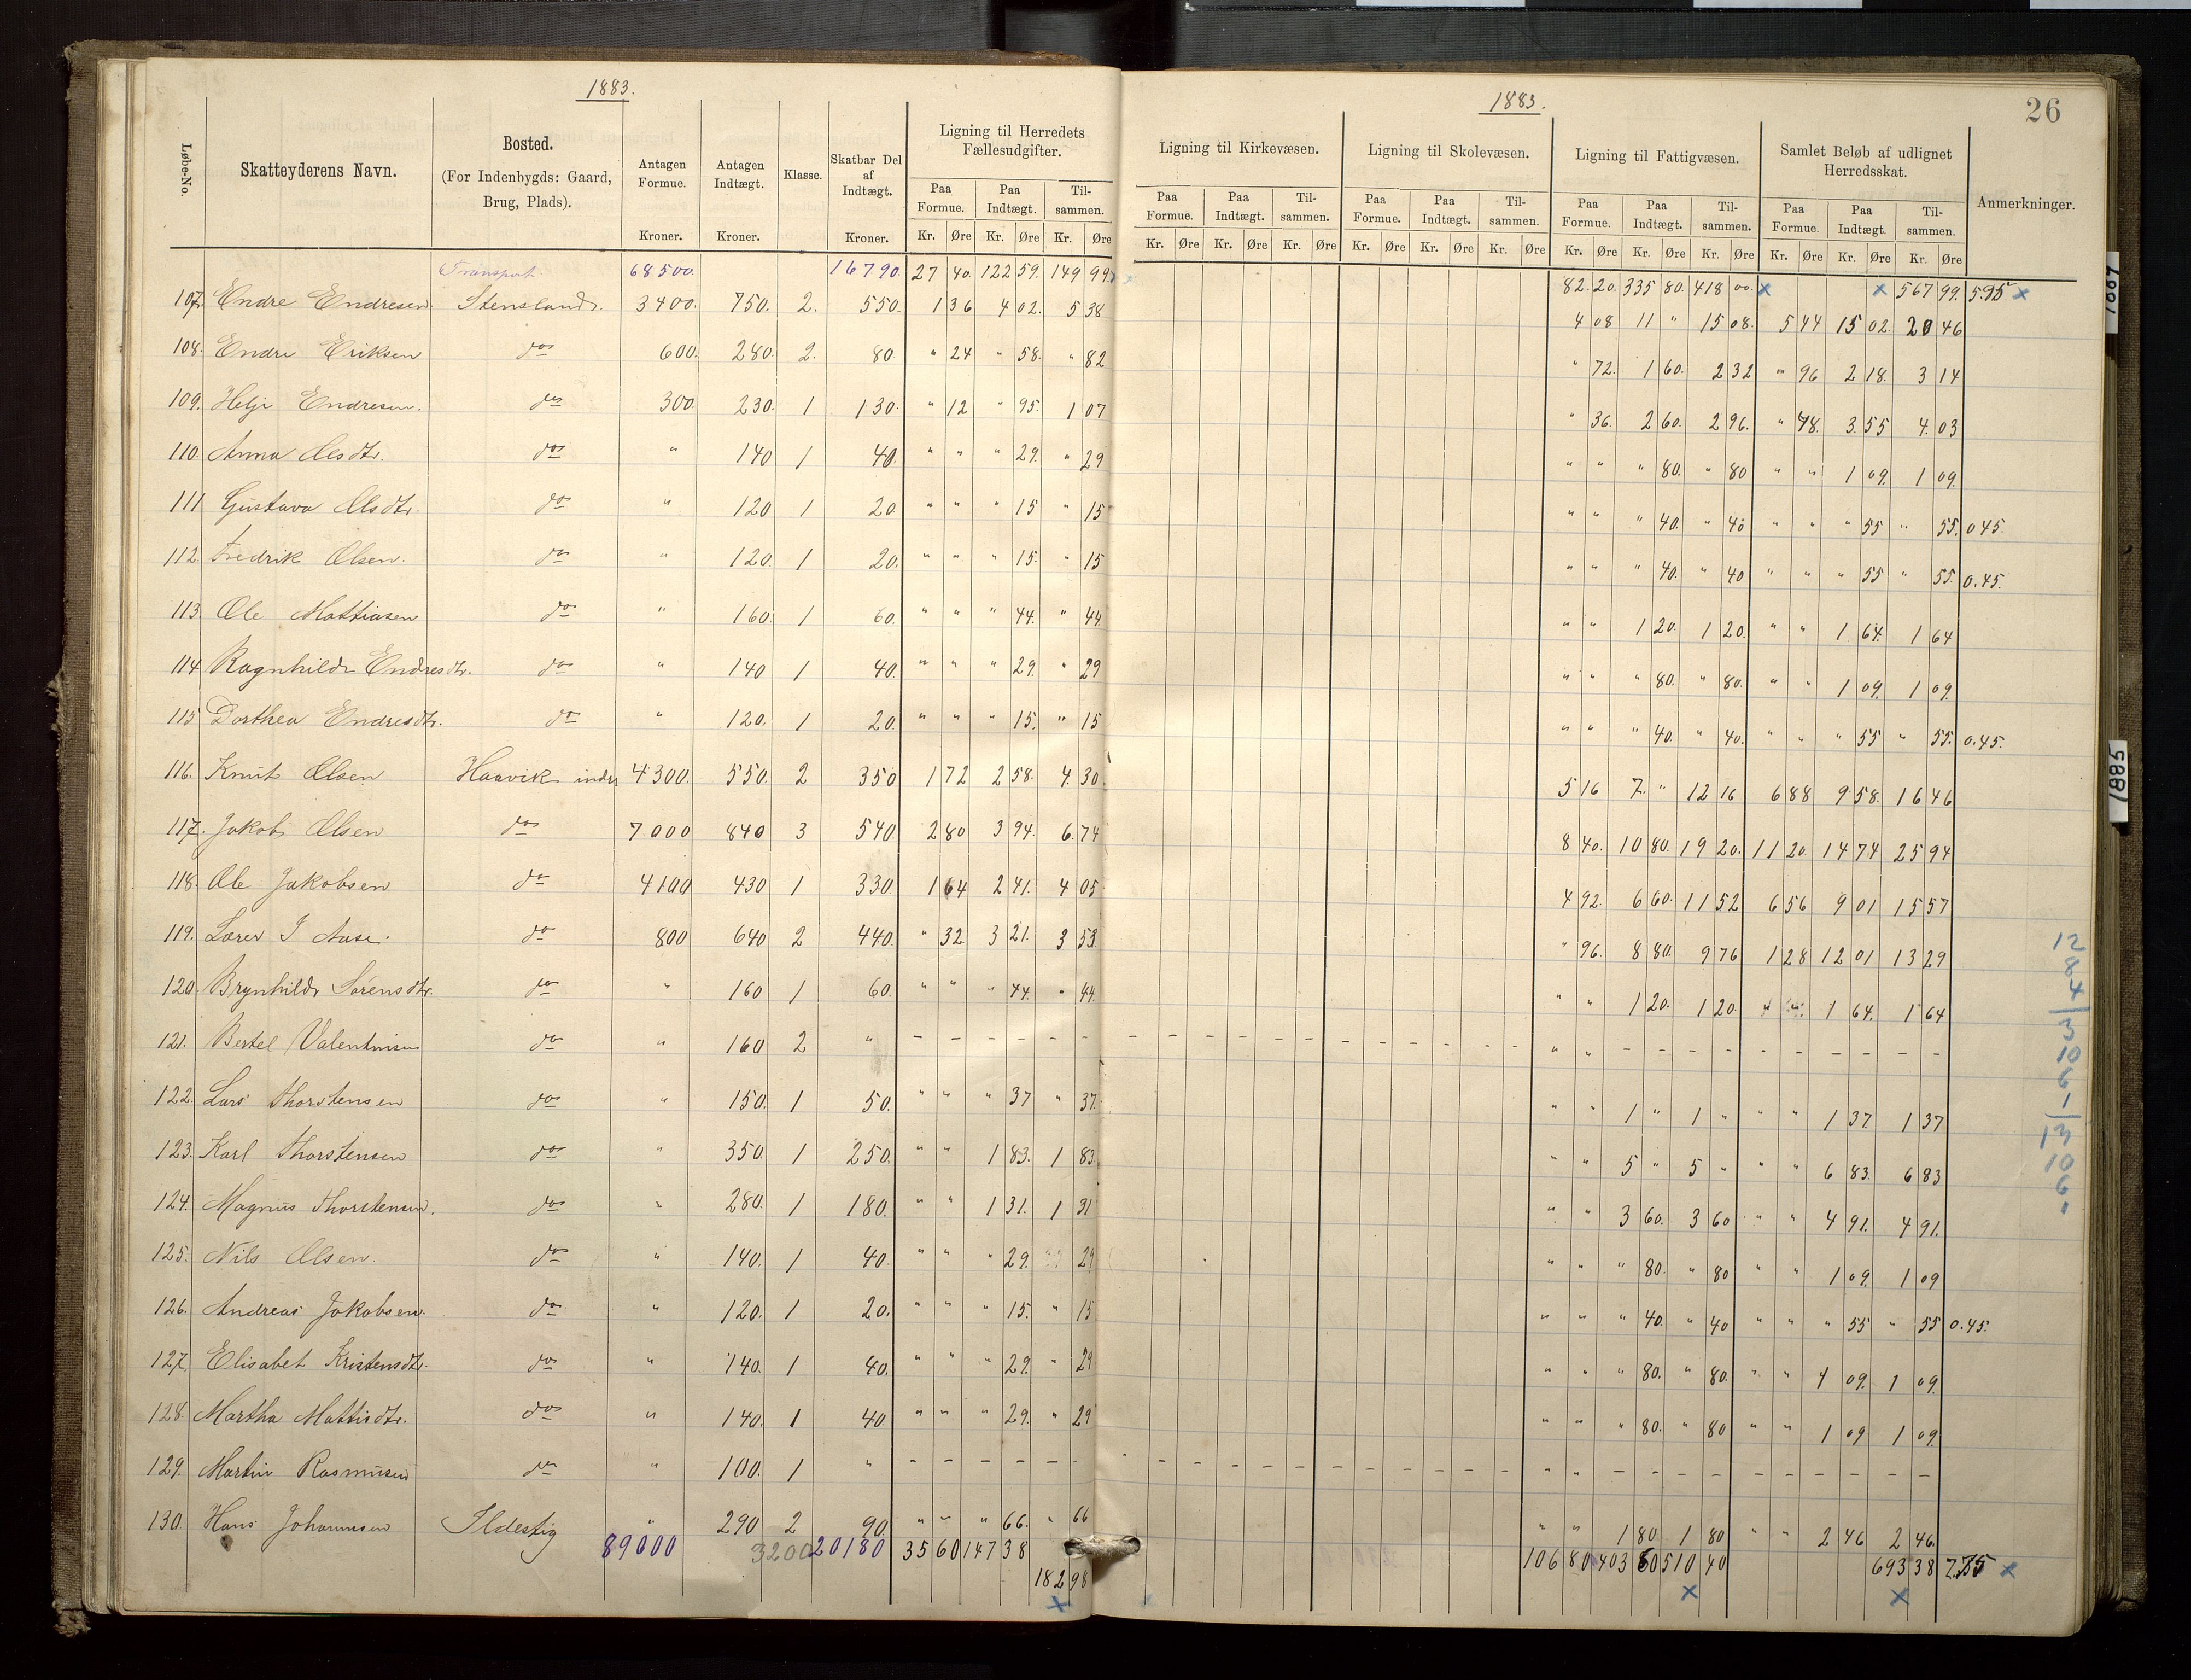 1883.
1883.
26
Løbe-No.
Skatteyderens Navn.
Bosted.
(For Indenbygds: Gaard, Brug, Plads).
Antagen Formue.
Kroner.
Antagen Indtægt.
Kroner.
Klasse.
Skatbar Del af Indtægt.
Kroner.
Ligning til Herredets Fællesudgifter.
Ligning til Kirkevæsen.
Ligning til Skolevæsen.
Ligning til Fattigvæsen.
Samlet Beløb af udlignet Herredsskat.
Anmerkninger.
Paa Formue. Paa Indtægt. Til-sammen. Paa Formue. Paa Indtægt. Til-sammen. Paa Formue. Paa Indtægt. Til-sammen. Paa Formue. Paa Indtægt. Til-sammen. Paa Formue. Paa Indtægt. Til-sammen.
Kr. Øre Kr. Øre Kr. Øre Kr. Øre Kr. Øre Kr. Øre Kr. Øre Kr. Øre Kr. Øre Kr. Øre Kr. Øre Kr. Øre Kr. Øre Kr. Øre Kr. Øre
Transport 68500. 16790. 27 40. 122 59. 149 99. 82. 20. 335 80. 418 00. x x 567 99. 5.95 x
107. Endre Endresen Stensland. 3400. 750. 2. 550. 1 36 4 02. 5 38 4 08 11 " 15 08. 5 44 15 02. 20 46
108. Endre Eriksen do 600. 280. 2. 80. " 24 " 58. " 82 " 72. 1 60. 2 32 " 96 2 18. 3 14
109. Helje Endresen. do 300. 230. 1 130. " 12 " 95. 1 07 " 36. 2 60. 2 96. " 48. 3. 55 4. 03
110. Anna Olsdtr. do " 140 1 40. " " " 29. " 29 " " " 80. " 80 " " 1 09. 1 09.
111 Gustava Olsdtr. do " 120 1 20. " " " 15 " 15 " " " 40. " 40 " " " 55 " 55. 0 45.
112. Fredrik Olsen. do " 120. 1 20. " " " 15. " 15 " " " 40. " 40 " " " 55 " 55. 0.45.
113. Ole Mattiasen do " 160. 1 60. " " " 44. " 44. " " 1 20. 1 20. " " 1 64. 1 64
114 Ragnhild Endresdtr. do " 140 1 40. " " " 29. " 29 " " " 80. " 80. " " 1 09. 1 09.
115 Dorthea Endresdtr. do " 120. 1 20. " " " 15. " 15 " " " 40. " 40. " " " 55 " 55. 0.45.
116. Knut Olsen Haavik indr 4300. 550. 2 350 1 72 2 58. 4. 30. 5 16 7. " 12 16 6 88 9 58. 16 46
117. Jakob Olsen do 7000 840 3 540. 2 80 3 94. 6. 74 8 40. 10 80. 19 20. 11 20. 14 74 25 94
118. Ole Jakobsen do 4100 430 1 330. 1 64 2 41. 4 05 4 92. 6 60. 11 52 6 56 9 01 15 57
119. Søren I Aase. do 800 640 2 440. " 32. 3 21. 3 53. " 96. 8 80. 9 76 1 28 12 01 13 29
120. Brynhild Sørensdtr. do " 160 1 60. " " " 44. " 44. " " 1 20. 1 20. " " 1 64. 1 64
121. Bertel Valentinsen do " 160 2 " - - - - - - - - - - - - - - - - - - " " - - - - - - - - - -
122. Lars Thorstensen do " 150. 1 50. " " " 37 " 37. " " 1 " 1 " " " 1 37. 1 37
123. Karl Thorstensen do " 350. 1 250. " " 1 83. 1 83. " " 5 " 5 " " " 6 83. 6 83
124. Magnus Thorstensen. do " 280. 1 180. " " 1 31. 1 31 " " 3 60. 3 60 " " 4 91. 4 91.
125. Nils Olsen. do " 140. 1 40. " " " 29. 29 " " " 80. " 80 " " 1 09. 1 09
126. Andreas Jakobsen. do " 120. 1 20. " " " 15. " 15 " " " 40. " 40 " " " 55 " 55 0.45.
127. Elisabet Kristensdtr. do " 140. 1 40. " " " 29. " 29 " " " 80. " 80. " " 1 09. 1 09.
128. Martha Mattisdtr. do " 140. 1 40. " " " 29. " 29 " " " 80. " 80 " " 1 09 1 09.
129. Martin Rasmusen do " 100. 1 " - - - - - - - - - - - - - - - - - - " " - - - - - - - - - -
130. Hans Johannesen Ildestig " 290 2 90. " " " 66. " 66 " " 1 80. 1 80 " " 2 46 2 46.
89000 3200 20180 35 60 147 38 106 80 403 60 510 40 693 38 7.75 x
182 98
x x x
1887
1885